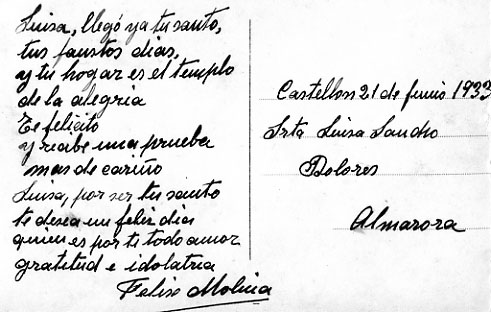 Luisa, llegó ya tu santo,
tus faustos dias,
y tu hogar es el templo
de la alegria
Te felicito
y recibe una prueba
mas de cariño
Luisa, por ser tu santo
te desea un feliz dia
quien es por ti todo amor
gratitud e idolatria
Felix Molina
Castellon 21 de Junio 1933
Srta Luisa Sancho
Dolores
Almazora